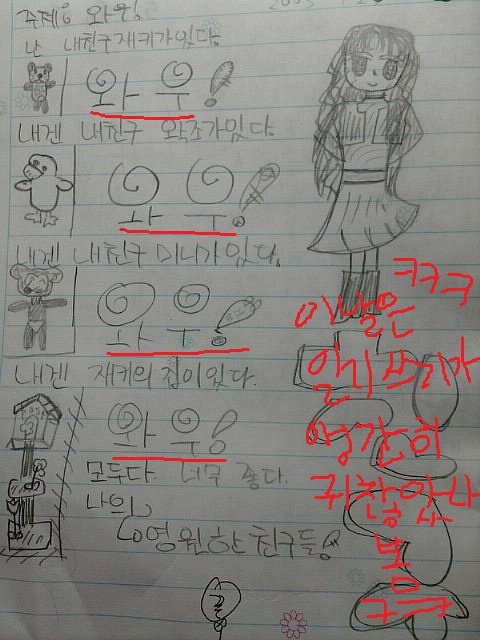 주제: 와우!
2003
난 내친구 재키가있다.
와우!
내겐 내친구 왁조가있다.
와우!
내겐 내친구 미니가있다.
와우!
내겐 재키의 집이있다.
와우!
모두다 너무 좋다.
나의
영원한 친구들!
끝
ㅋㅋㅋ
이날은
일기쓰기가
엉간히
귀찮았나
봄
ㅋㅋ